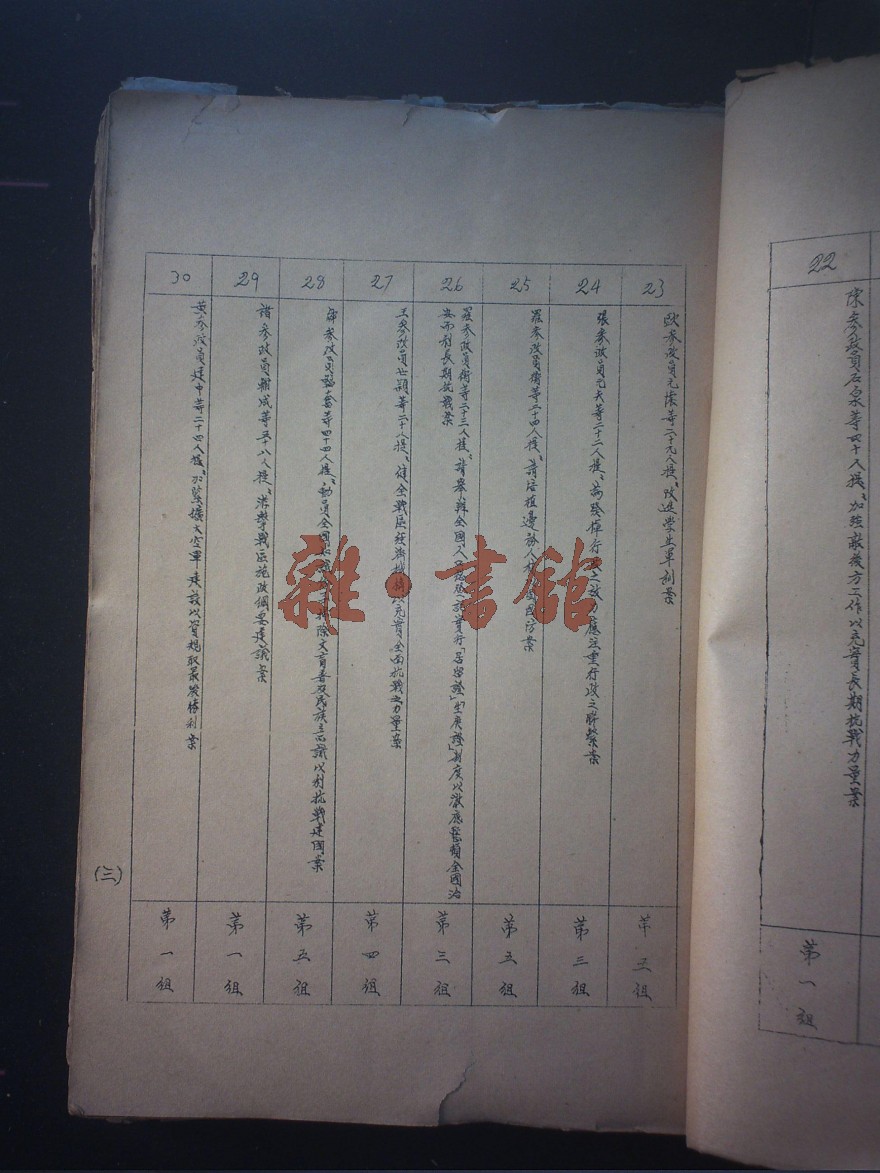 22
陳參政員石泉等四十人提：加強敵後方工作以充實長期抗戰力量案
第一組
23
歐參政員元懷等二十九人提：改進學生軍制案
第三組
24
張參政員元夫等二十二人提：為發揮行政之效力應注重行政之聯繫案
第三組
25
羅參政員衡等二十四人提：請培植邊疆人材 國防案
第五組
26
羅參政員衡等二十三人提：請舉辦全國人 實行「居留證」「出庚證」制度以澈底整頓全國治
安而利長期抗戰案
第三組
27
王參政員世穎等二十人提：健全戰區經濟機構以充實全面抗戰之力量案
第四組
28
參政員 等四十四人提：動員全國 除文盲普及民族意識以利抗戰建國案
第五組
29
褚參政員輔成等五十八人提： 戰區施政綱要建議案
第一組
30
黃參政員建中等二十四人提：加緊擴大空軍建設以資規取最後勝利案
第一組
(三)
雜·書館